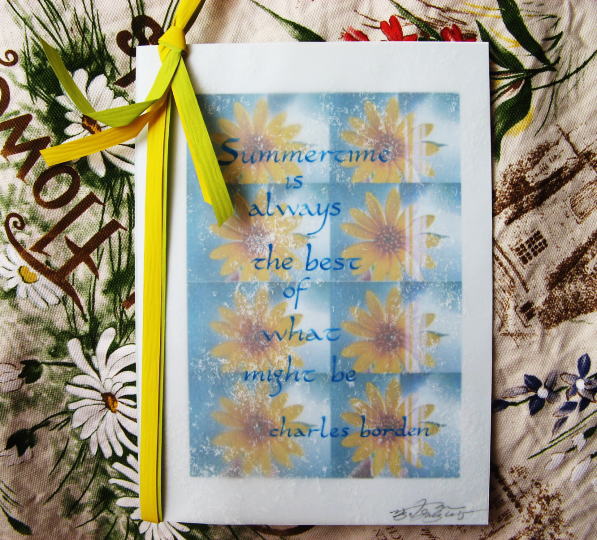 Summertime
is
always
the best
of
what
might be
charles borden